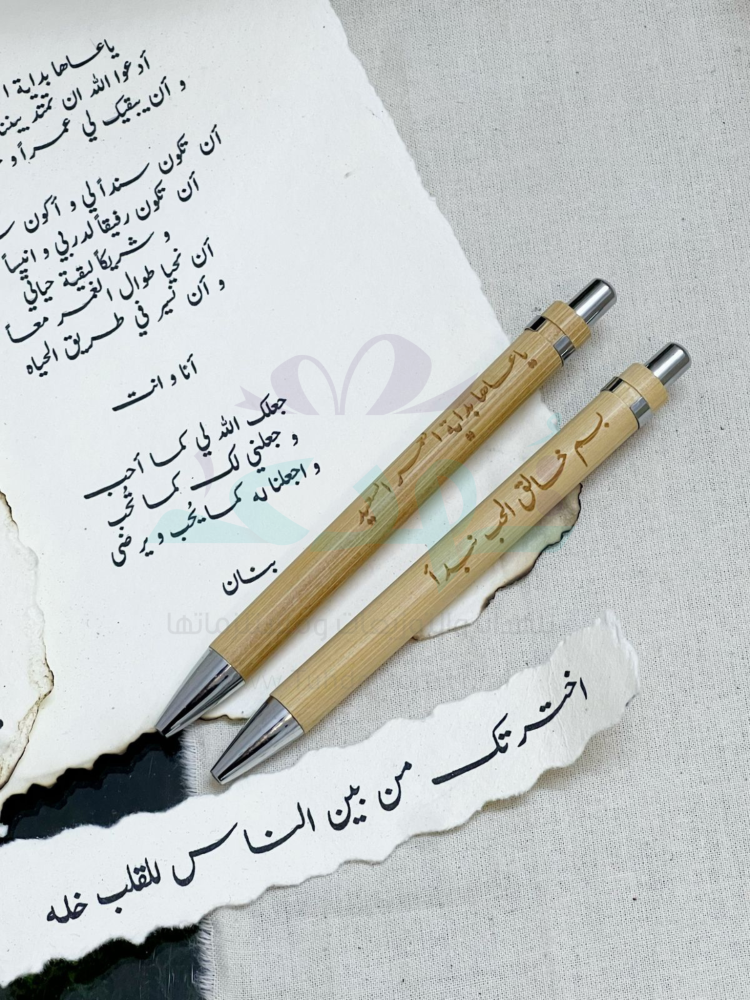 ياعساها بداية ا
أدعوا الله ان تمتد بيننا
و أن يبقيك لي عمراً و
أن تكون سنداً لي و أكون
أن تكون رفيقاً لدربي و انيساً
و شريكاً لبقية حياتي
أن نحيا طوال العمر معاً
و أن نسير في طريق الحياه
أنا و انت
جعلك الله لي كما أحب
و جعلني لك كما تُحب
و اجعلنا له كما يُحب و يرضى
بنان
ياعساها بداية العمر السعيد
بسم خالق الحب نبدأ
اخترتك من بين الناس للقلب خله